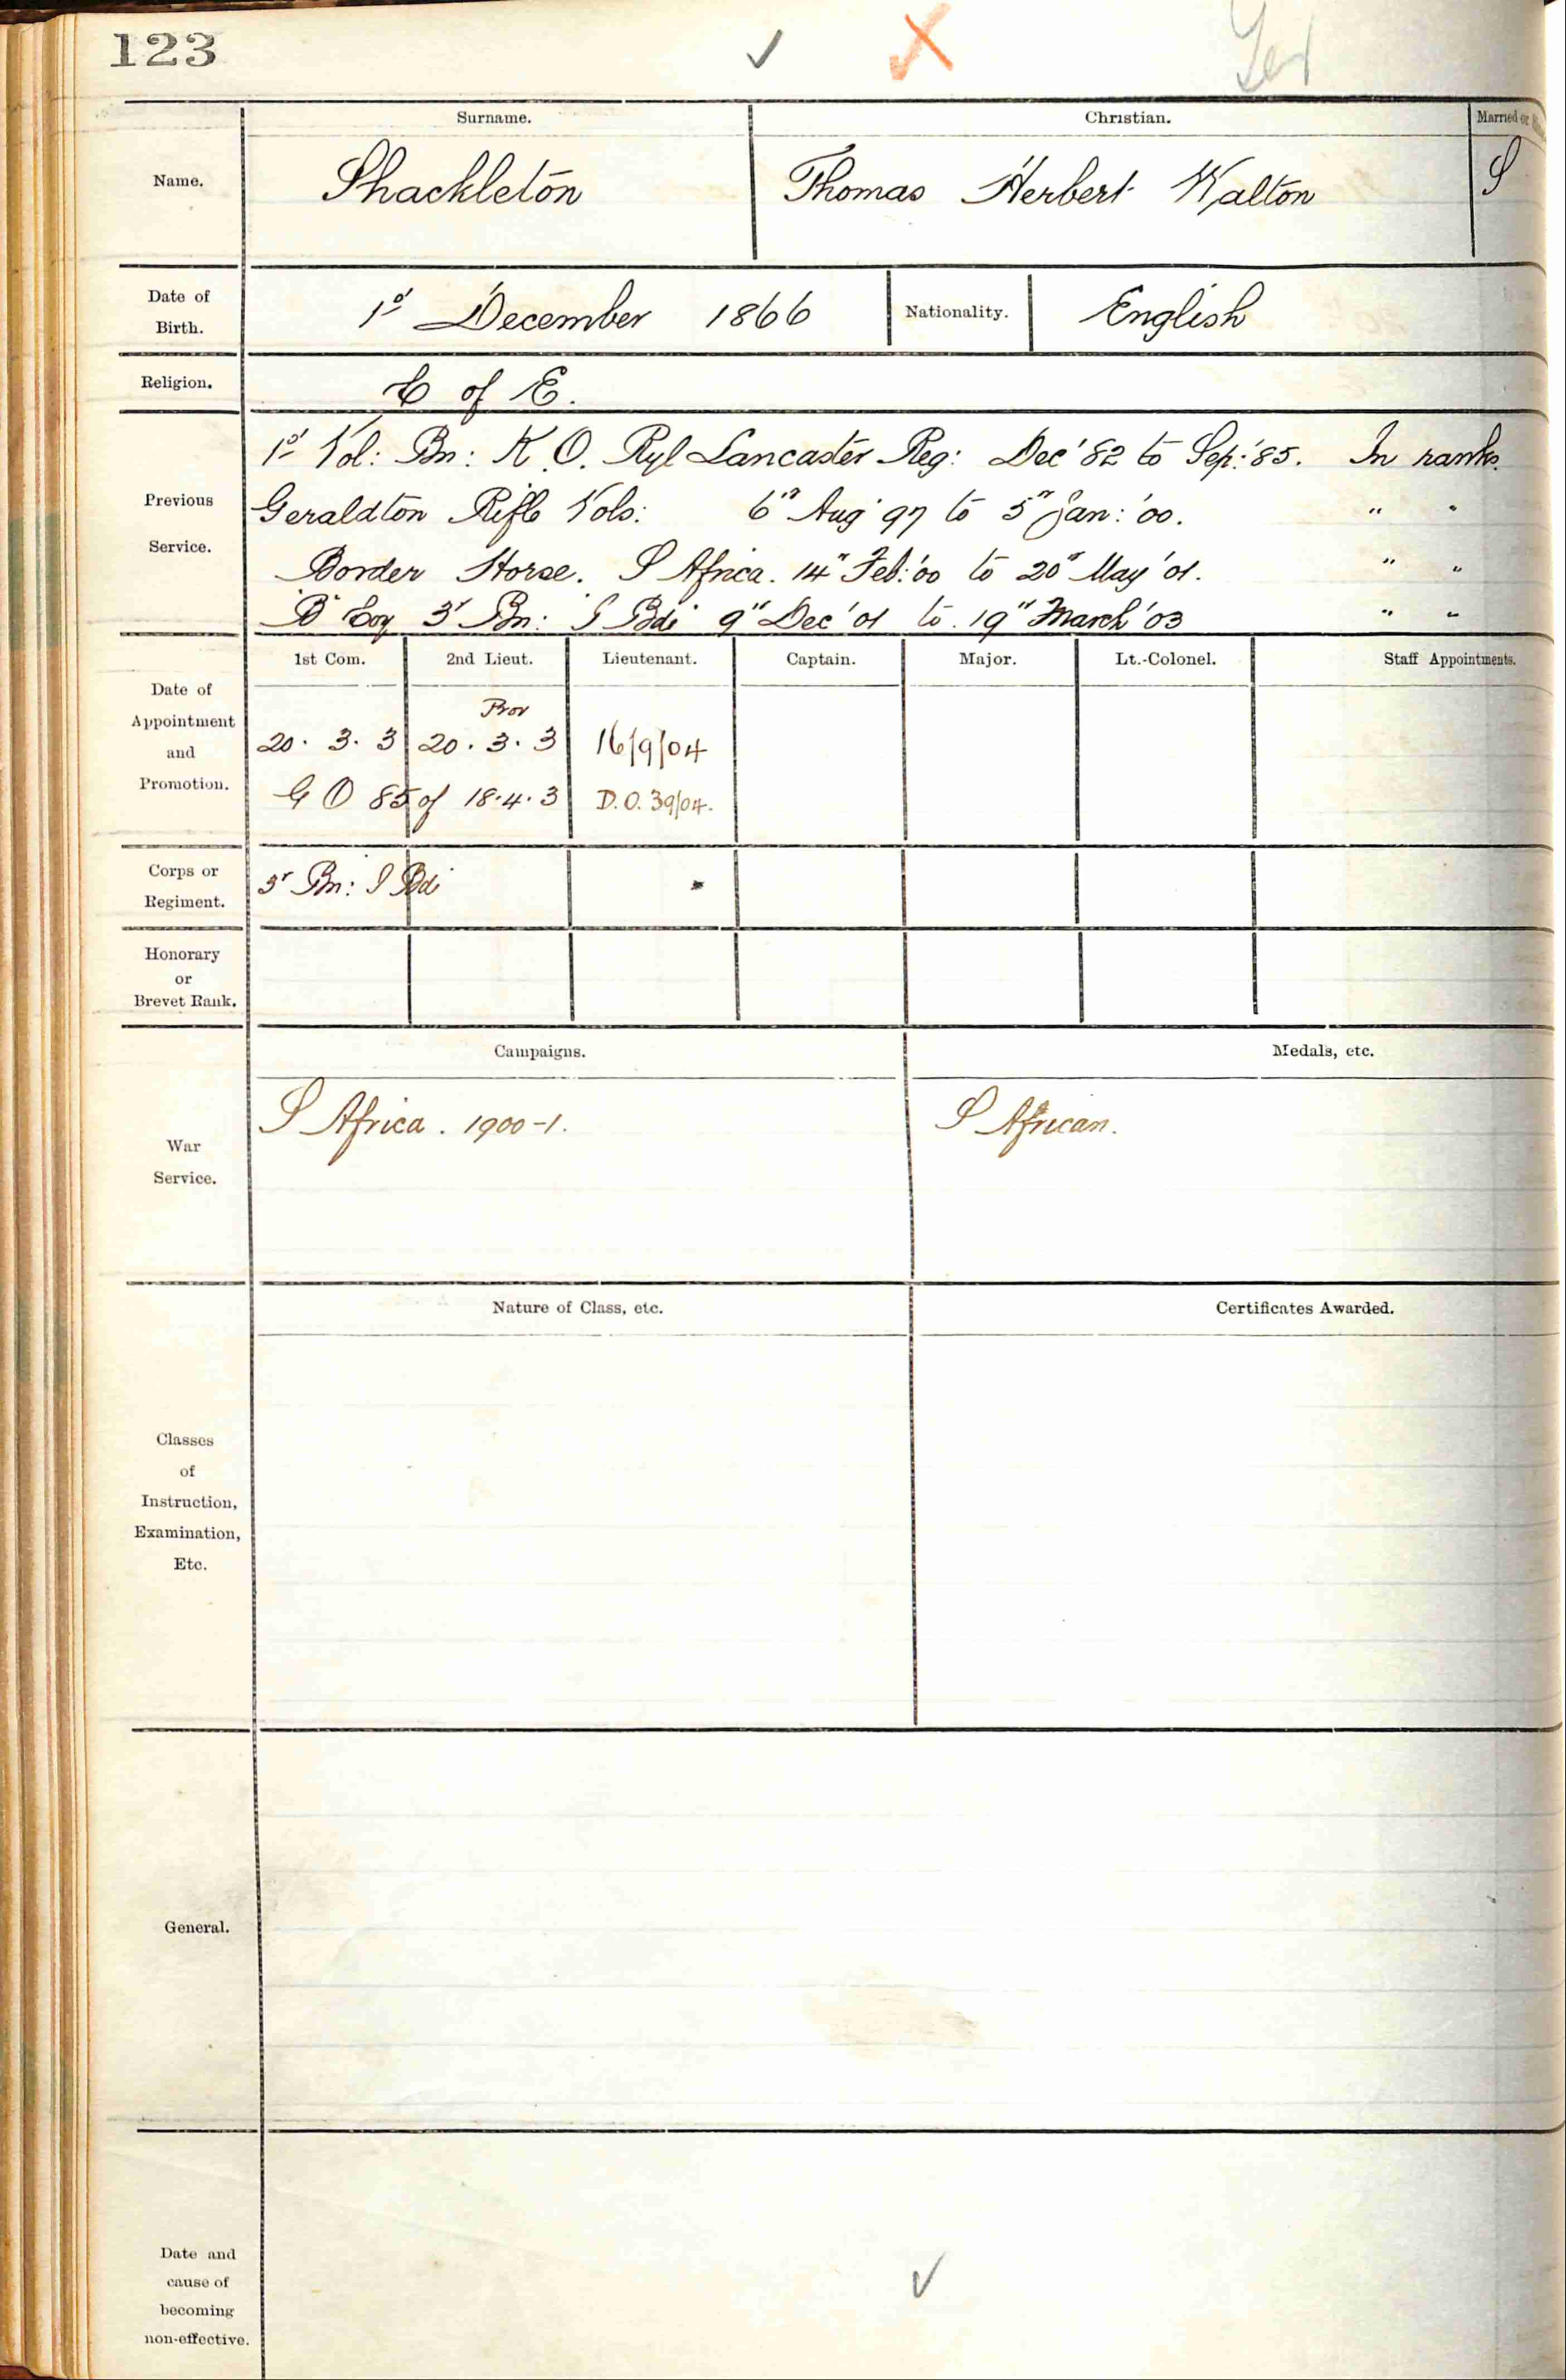 123
Surname. Christian. Married or
Name. Shackleton Thomas Herbert Walton S
Date of Birth. 1st December 1866 Nationality. English
Religion. C of E.
Previous Service.
1st Vol: Bn: K. O. Ryl Lancaster Reg: Dec '82 to Sep: '85. In ranks.
Geraldton Rifle Vols: 6th Aug 97 to 5th Jan: '00. " "
Border Horse. S Africa. 14th Feb: '00 to 20th May '01. " "
'B' Coy 3r Bn: I Bdi 9th Dec '01 to 19th March '03 " "
1st Com. 2nd Lieut. Lieutenant. Captain. Major. Lt.-Colonel. Staff Appointments.
Date of Appointment and Promotion.
Prov
20. 3. 3 20. 3. 3 16/9/04
G O 85 of 18.4.3 D.O. 39/04.
Corps or Regiment. 3r Bn: I Bdi "
Honorary or Brevet Rank.
Campaigns. Medals, etc.
War Service. S Africa. 1900-1. S African.
Nature of Class, etc. Certificates Awarded.
Classes of Instruction, Examination, Etc.
General.
Date and cause of becoming non-effective.